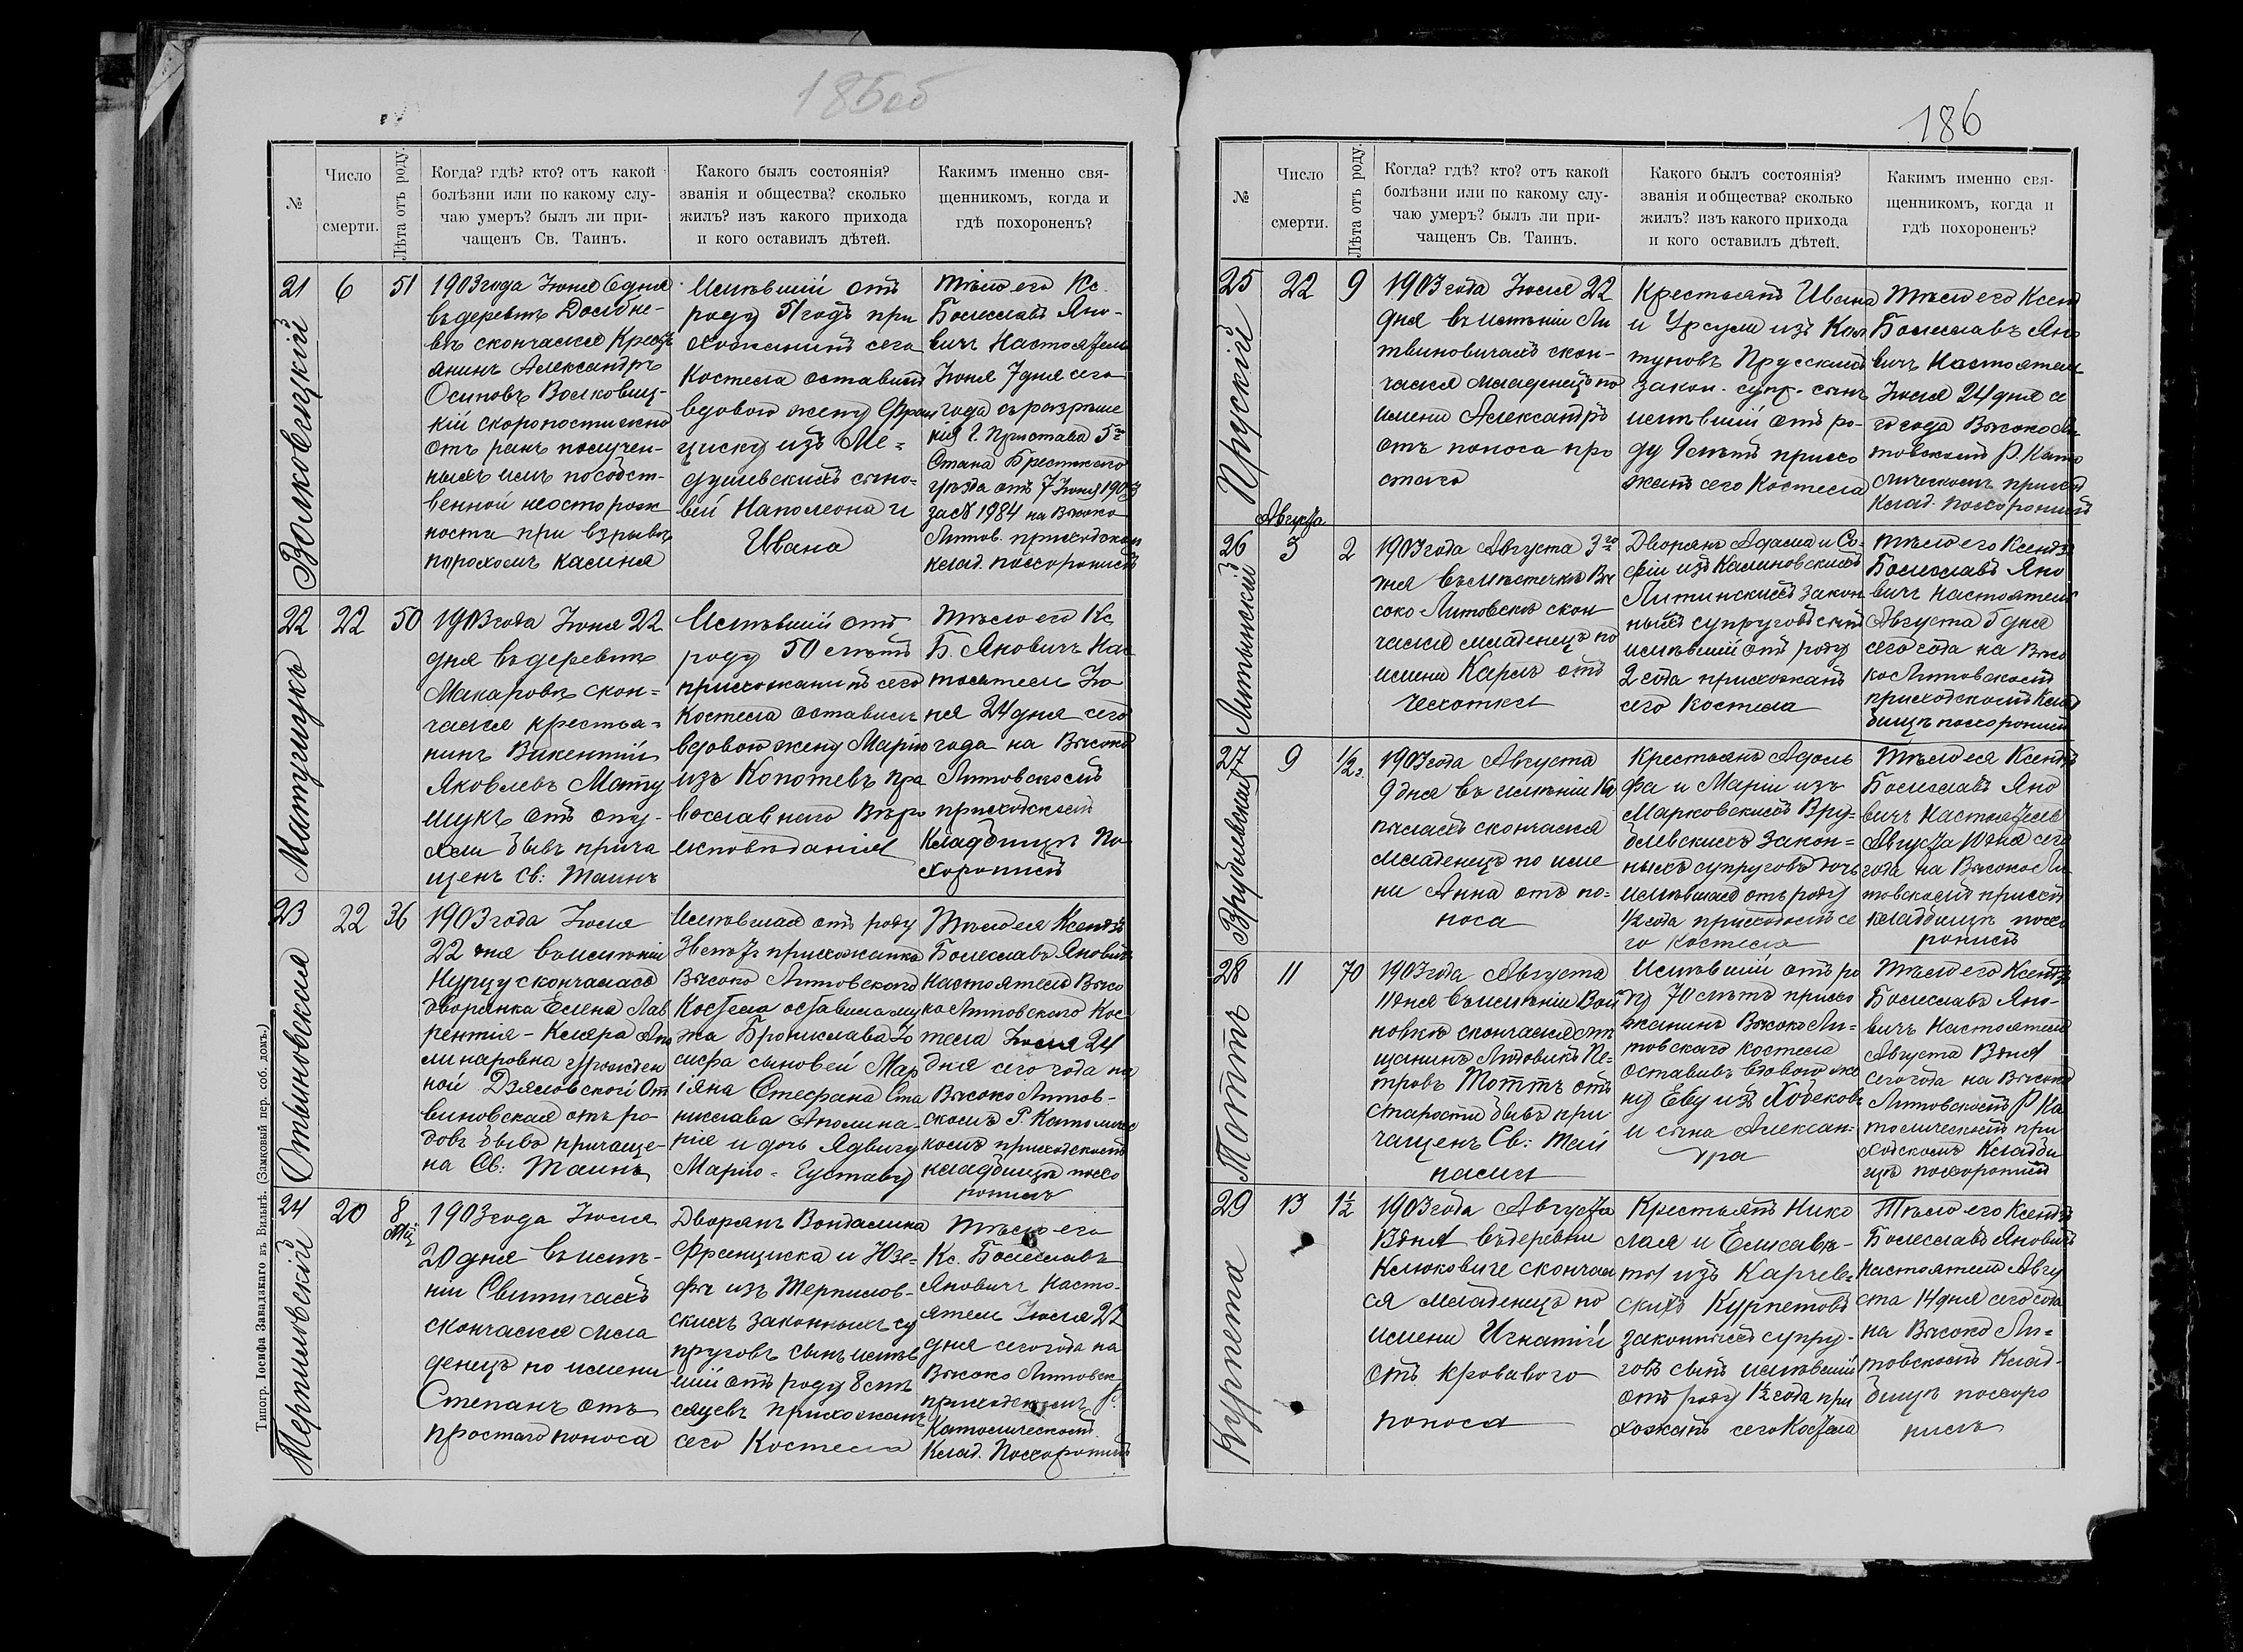 186об
№
Число
смерти.
Лѣта отъ роду.
Когда? гдѣ? кто? отъ какой
болѣзни или по какому слу-
чаю умеръ? былъ ли при-
чащенъ Св. Таинъ.
Какого былъ состоянія?
званія и общества? сколько
жилъ? изъ какого прихода
и кого оставилъ дѣтей.
Какимъ именно свя-
щенникомъ, когда и
гдѣ похороненъ?
21
Волковецкій
6
51
1903 года Іюня 6 дня
въ деревнѣ
скончался Крест
янинъ Александръ
Осиповъ Волковец-
кій скоропостижно
отъ ранъ получен-
ныхъ имъ по собст-
венной неосторож
ности при взрывѣ
порохомъ камня
Имѣвшій отъ
роду 51 годъ при
хожанинъ сего
Костела оставилъ
вдовою жену Фран
циску изъ Ме-
душевскихъ сыно-
вей Наполеона и
Ивана
Тѣло его Кс.
Болеславъ Яно-
вичъ Настоятель
Іюня 7 дня сего
года съ разрѣше
нія Г. Пристава 5го
Стана Брестскаго
уѣзда отъ 7 Іюня 1903
за № 1984 на Высоко
Литов. приходском
клад. похоронилъ
22
Матущукъ
22
50
1903 года Іюня 22
дня въ деревнѣ
Макаровѣ скон-
чался крестья-
нинъ Викентій
Яковлевъ Мату
щукъ отъ опу-
холи бывъ прича
щенъ Св: Таинъ
Имѣвшій отъ
роду 50 лѣтъ
прихожанинъ сего
Костела оставилъ
вдовою жену Марію
изъ Копотевъ пра
вославнаго Вѣро
исповѣданія
Тѣло его Кс
Б. Яновичъ Нас
тоятель Ію
ня 24 дня сего
года на Высоко
Литовскомъ
приходскомъ
Кладбищѣ По-
хоронилъ
23
Отвиновская
22
36
1903 года Іюля
22 дня въ имѣніи
Нурцу скончалась
дворянка Елена Лав
рентія-Клара Апо
линаровна урожден
ной Дзяловской От
виновская отъ ро-
довъ бывъ причаще-
на Св: Таинъ
Имѣвшая отъ роду
36 лѣтъ прихожанка
Высоко Литовскаго
Костела оставила му
жа Бронислава Іо
сифа сыновей Мар
іяна Стефана Ста
нислава Аполина-
рія и дочь Ядвигу
Марію-Густаву
Тѣло ея Ксендзъ
Болеславъ Яновичъ
Настоятель Высо
ко Литовскаго Кос
тела Іюля 24
дня сего года на
Высоко Литов-
скомъ Р. Католичес
комъ приходскомъ
кладбищѣ похо
ронилъ
24
Терпиловскій
20
8
Мц
1903 года Іюля
20 дня въ имѣ-
ніи Свитичахъ
скончался мла
денецъ по имени
Степанъ отъ
простаго поноса
Дворянъ Вондалина
Францишка и Юзе-
фы изъ Терпилов-
скихъ законныхъ су
пруговъ сынъ имѣв
шій отъ роду 8 мѣ
сяцевъ прихожанъ
сего Костела
Тѣло его
Кс. Болеславъ
Яновичъ Насто-
ятель Іюля 22
дня сего года на
Высоко Литовск
приходскомъ Р.
Католическомъ
Клад. Похоронилъ
Типогр. Іосифа Завадзкаго въ Вильнѣ. (Замковый пер. соб. домъ.)
186
№
Число
смерти.
Лѣта отъ роду.
Когда? гдѣ? кто? отъ какой
болѣзни или по какому слу-
чаю умеръ? былъ ли при-
чащенъ Св. Таинъ.
Какого былъ состоянія?
званія и общества? сколько
жилъ? изъ какого прихода
и кого оставилъ дѣтей.
Какимъ именно свя-
щенникомъ, когда и
гдѣ похороненъ?
25
Прускій
22
9
1903 года Іюля 22
дня въ имѣніи Ли
твиновичахъ скон-
чался младенецъ по
имени Александръ
отъ поноса про
стаго
Крестьянъ Ивана
и Урсули изъ Кал
туновъ Прусскихъ
закон. супр. сынъ
имѣвшій отъ ро-
ду 9 лѣтъ прихо
жанъ сего Костела
Тѣло его Ксенд
Болеславъ Яно
вичъ Настоятель
Іюля 24 дня се
го года Высоко Ли
товскомъ Р. Като
лическомъ приход
Клад. похоронилъ
Августа
26
Литынскій
3
2
1903 года Августа 3го
дня въ мѣстечкѣ Вы
соко Литовскѣ скон
чался младенецъ по
имени Карлъ отъ
чехотки
Дворянъ Адама и Со-
фіи изъ Калиновскихъ
Литинскихъ закон
ныхъ супруговъ сынъ
имѣвшій отъ роду
2 года прихожанъ
сего костела
Тѣло его Ксендзъ
Болеславъ Яно
вичъ Настоятель
Августа 5 дня
сего года на Высо
ко Литовскомъ
приходскомъ Клад
бищѣ похоронилъ
27
Врублевская
9
1/2 г.
1903 года Августа
9 дня въ имѣніи
скончался
младенецъ по име
ни Анна отъ по-
носа
Крестьянъ Адоль
фа и Маріи изъ
Марковскихъ Вру-
блевскихъ закон-
ныхъ супруговъ дочь
имѣвшая отъ роду
1/2 года приходомъ се
го костела
Тѣло ея Ксендзъ
Болеславъ Яно
вичъ Настоятель
Августа 10 дня сего
года на Высоко Ли-
товскомъ приход
кладбищѣ похо
ронилъ
28
Тоттъ
11
70
1903 года Августа
11 дня въ имѣніи Вой
новкѣ скончался мѣ
щанинъ Людовикъ Пе-
тровъ Тоттъ отъ
старости бывъ при
чащенъ Св: Тай
нами
Имѣвшій отъ ро
ду 70 лѣтъ прихо
жанинъ Высоко Ли-
товскаго костела
оставивъ вдовою же
ну Еву изъ Ходековъ
и сына Алексан-
дра
Тѣло его Ксендзъ
Болеславъ Яно-
вичъ Настоятель
Августа 13 дня
сего года на Высоко
Литовскомъ Р Ка
толическомъ при
ходскомъ Кладби
щѣ похоронилъ
29
Курпета
13
1 1/2
1903 года Августа
13 дня въ деревни
Клюковиче скончал
ся младенецъ по
имени Игнатій
отъ кроваваго
поноса
Крестьянъ Нико
лая и Елисаве-
ты изъ Карчев-
скихъ Курпетовъ
законныхъ супру-
говъ сынъ имѣвшій
отъ роду 1 1/2 года при
хожанъ сего Костела
Тѣло его Ксендзъ
Болеславъ Яновичъ
Настоятель Авгу
ста 14 дня сего года
на Высоко Ли-
товскомъ Клад-
бищѣ похоро
нилъ